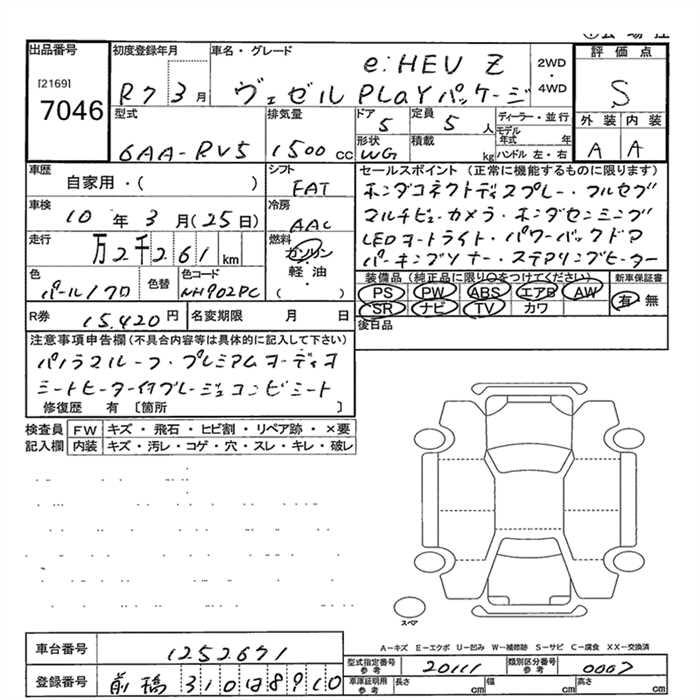 出品番号
[2169]
7046
初度登録年月
R7 3月
車名・グレード
e:HEV Z
ヴェゼル PLaYパッケージ
2WD
・
4WD
評価点
S
外装 内装
A A
型式
6AA-RV5
排気量
1500cc
ドア
5
定員
5人
形状
WG
積載
kg
ディーラー・並行
モデル年式 年
ハンドル 左・右
車歴
自家用・( )
シフト
FAT
車検
10年3月(25日)
冷房
AAC
走行
万2千261km
燃料
ガソリン
軽油
( )
色
パール/クロ
色替
色コード
NH902PC
セールスポイント(正常に機能するものに限ります)
ホンダコネクトディスプレー・フルセグ
マルチビューカメラ・ホンダセンシング
LEDオートライト・パワーバックドア
パーキングソナー・ステアリングヒーター
装備品(純正品に限り○をつけてください)
PS PW ABS エアB AW
SR ナビ TV カワ
新車保証書
有 無
R券 15,420円
名変期限 月 日
後日品
注意事項申告欄(不具合内容等は具体的に記入して下さい)
パノラマルーフ・プレミアムオーディオ
シートヒーター付グレージュコンビシート
修復歴 有 〔箇所 〕
検査員記入欄
FW キズ・飛石・ヒビ割・リペア跡・×要
内装 キズ・汚レ・コゲ・穴・スレ・キレ・破レ
スペア
A−キズ E−エクボ U−凹み W−補修跡 S−サビ C−腐食 XX−交換済
車台番号 1252671
登録番号 前橋 310は8910
型式指定番号 参考 20111
類別区分番号 参考 0007
車庫証明用 参考 長さ cm 幅 cm 高さ cm